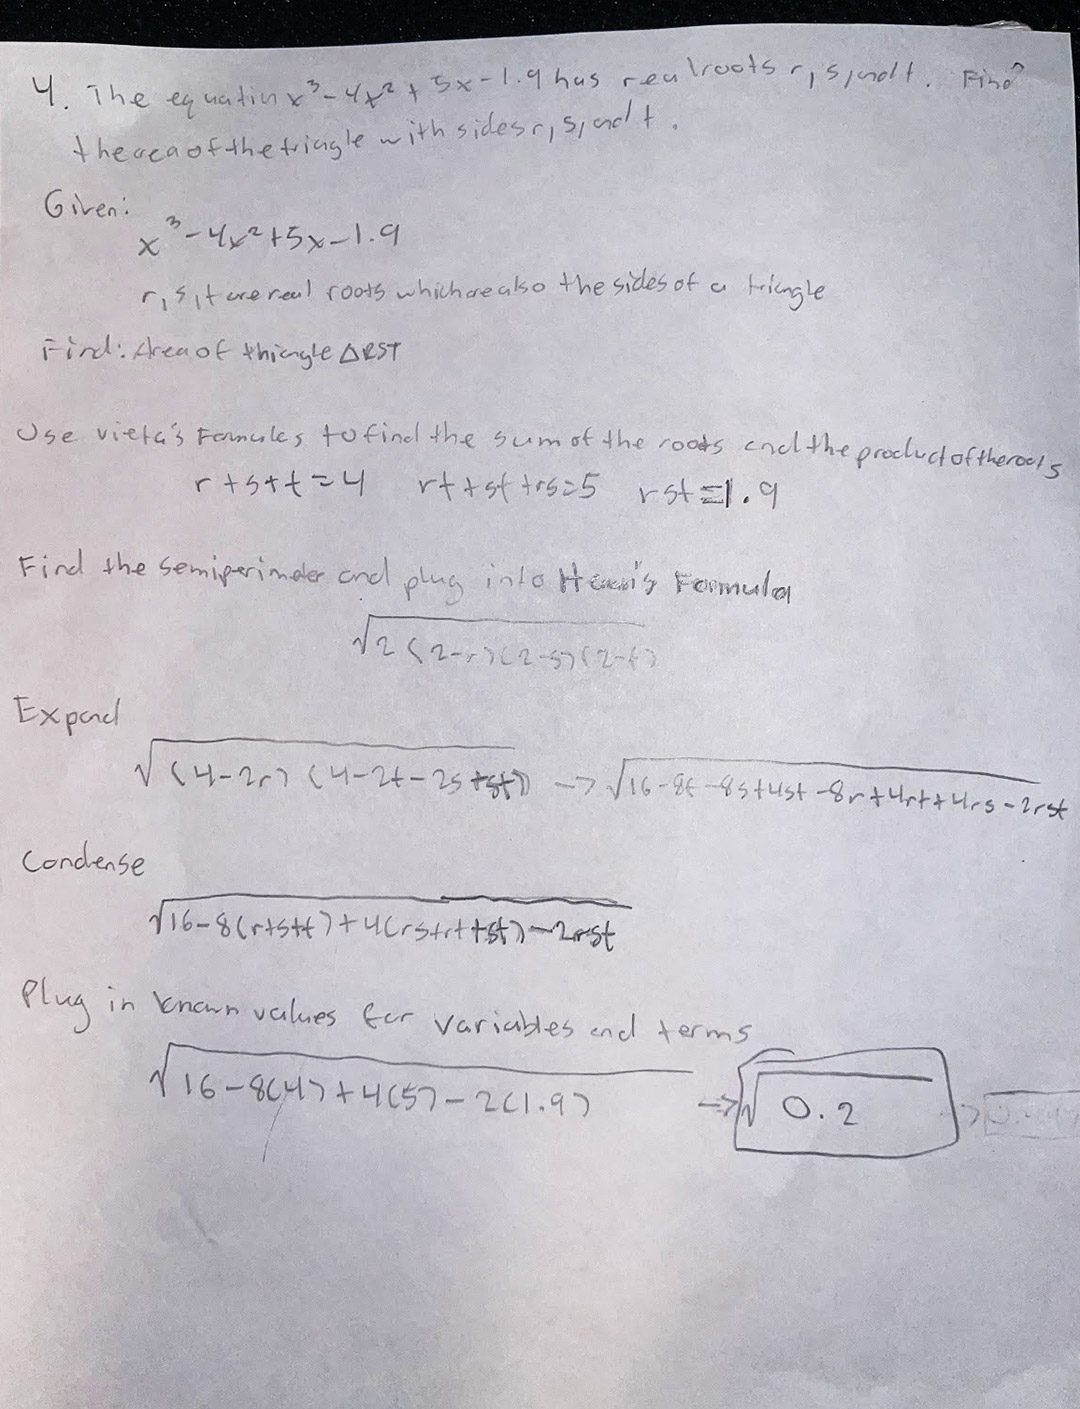 4. The equation x³-4x²+5x-1.9 has real roots r, s, and t. Find
the area of the triangle with sides r, s, and t.
Given:
x³-4x²+5x-1.9
r, s, t are real roots which are also the sides of a triangle
Find: Area of thiangle △RST
Use vieta's Formules to find the sum of the roots and the product of the roots
r+s+t=4 rt+st+rs=5 rst=1.9
Find the semiperimeter and plug into Heron's Formula
√2(2-r)(2-s)(2-t)
Expand
√(4-2r)(4-2t-2s+st) → √16-8t-8s+4st-8r+4rt+4rs-2rst
Condense
√16-8(r+s+t)+4(rs+rt+st)-2rst
Plug in known values for variables and terms
√16-8(4)+4(5)-2(1.9) → √0.2 →